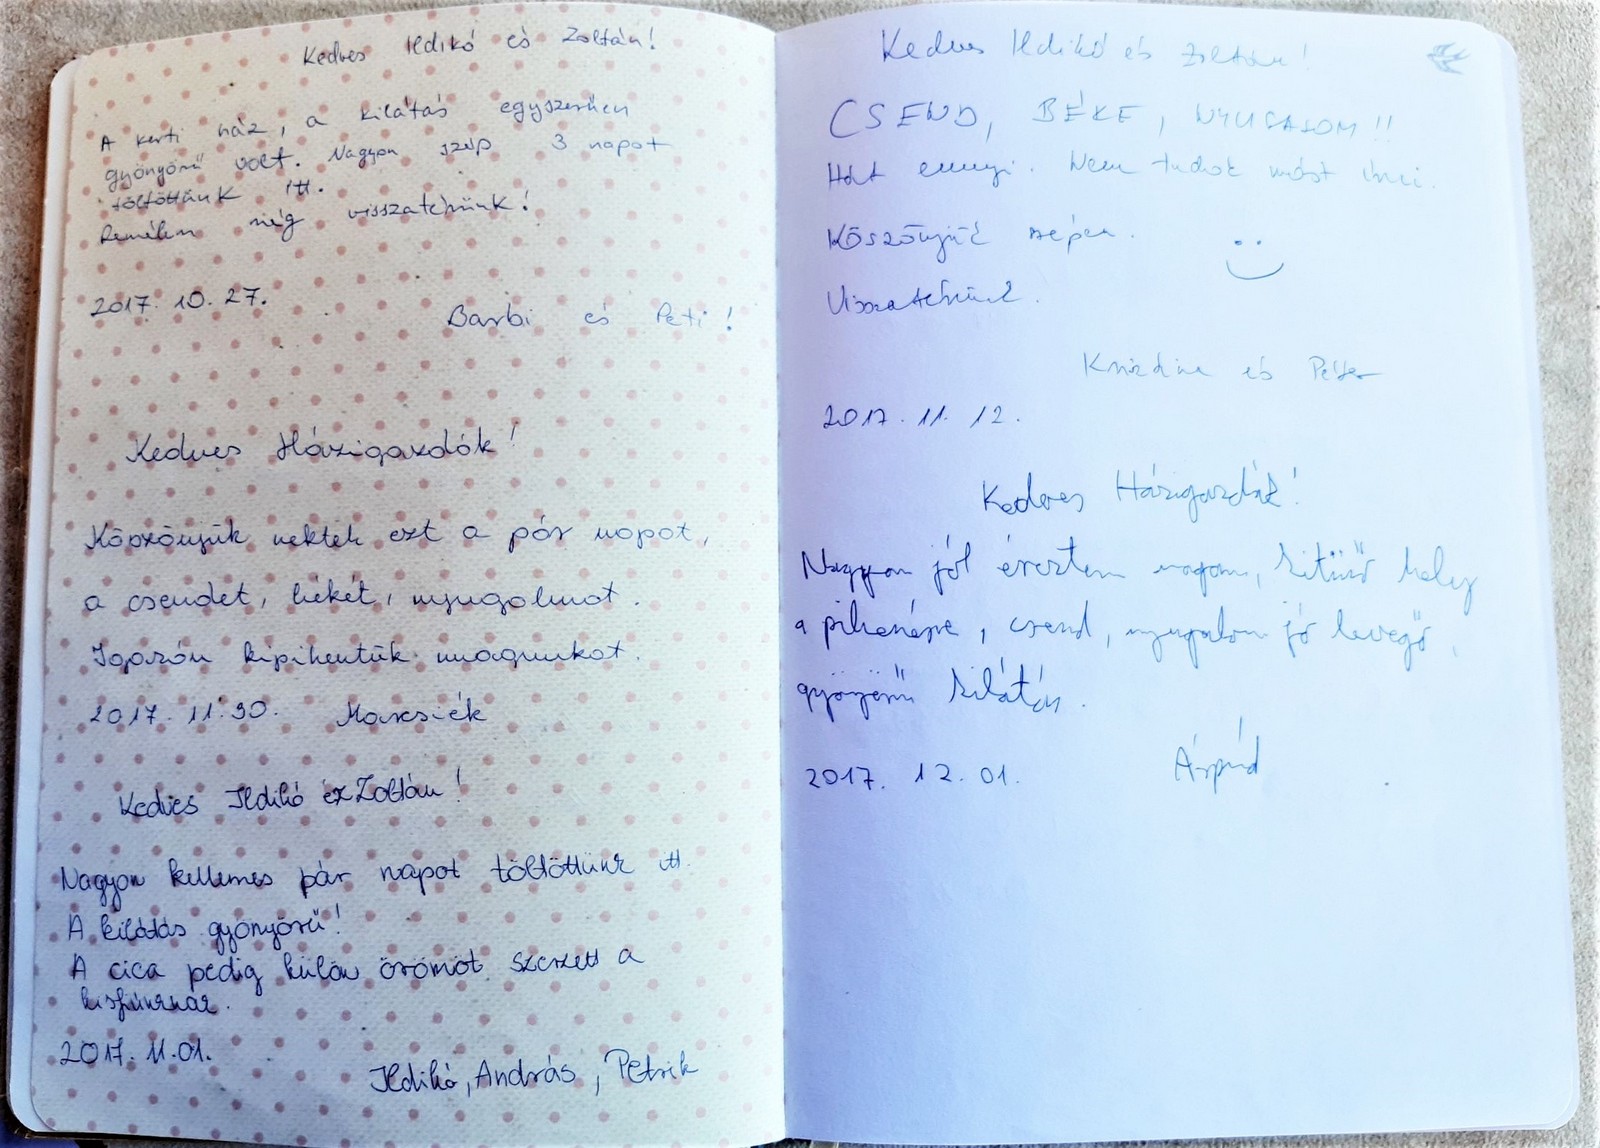 Kedves Ildikó és Zoltán!
A kerti ház, a kilátás egyszerűen
gyönyörű volt. Nagyon szép 3 napot
töltöttünk itt.
Remélem még visszatérünk!
2017. 10. 27.
Barbi és Peti!
Kedves Házigazdák!
Köszönjük nektek ezt a pár napot,
a csendet, békét, nyugalmat.
Igazán kipihentük magunkat.
2017. 11. 30. Marcsiék
Kedves Ildikó és Zoltán!
Nagyon kellemes pár napot töltöttünk itt.
A kilátás gyönyörű!
A cica pedig külön örömöt szerzett a
kisfiunknak.
2017. 11. 01.
Ildikó, András, Petrik
Kedves Ildikó és Zoltán!
CSEND, BÉKE, NYUGALOM!!
Hát ennyi. Nem tudok mást írni.
Köszönjük szépen.
Visszatérünk.
Krisztina és Péter
2017. 11. 12.
Kedves Házigazdák!
Nagyon jól éreztem magam, kitűnő hely
a pihenésre, csend, nyugalom jó levegő,
gyönyörű kilátás.
2017. 12. 01. Árpád